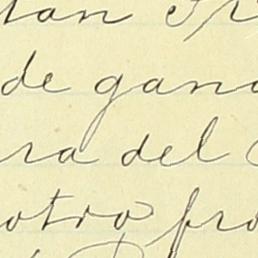 tan
de gana
ra del
otro pro